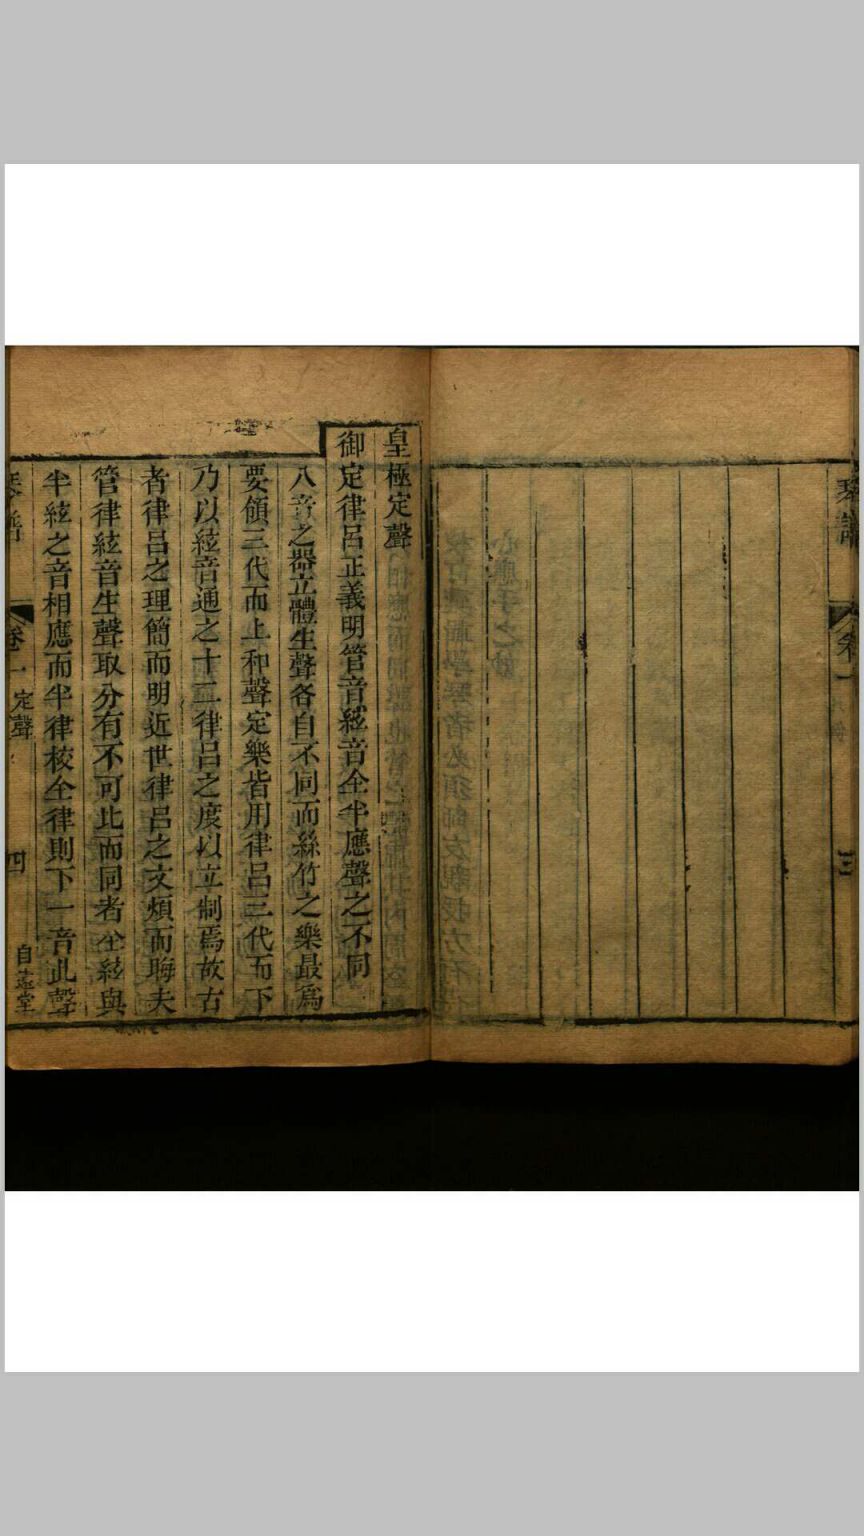 琴譜
卷一
三
皇極定聲
御定律呂正義明管音絃音全半應聲之不同
八音之器立體生聲各自不同而絲竹之樂最爲
要領三代而上和聲定樂皆用律呂三代而下
乃以絃音通之十二律呂之度以立制焉故古
者律呂之理簡而明近世律呂之文煩而晦夫
管律絃音生聲取分有不可比而同者全絃與
半絃之音相應而半律校全律則下一音此聲
琴譜
卷一
定聲
四
自遠堂